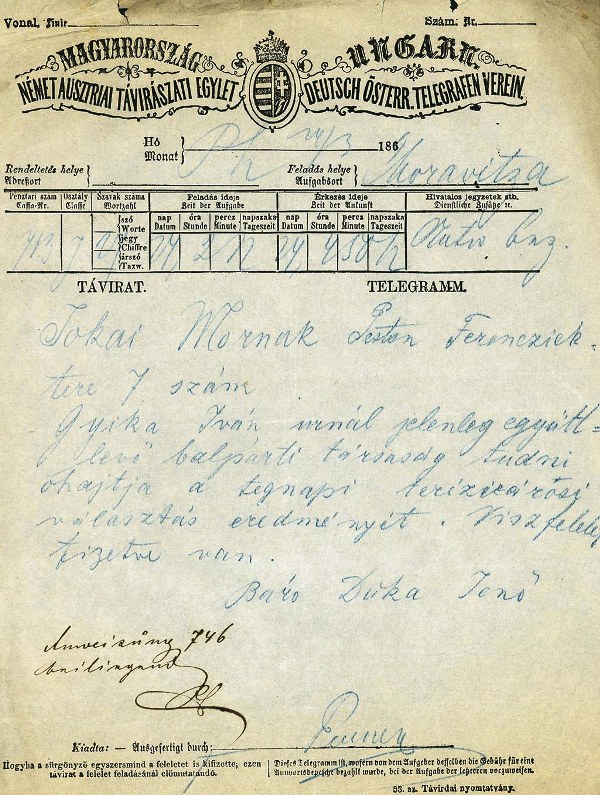 Vonal. Linie
Szám. Nr.
MAGYARORSZÁG UNGARN.
NÉMET AUSZTRIAI TÁVIRÁSZATI EGYLET DEUTSCH ÖSTERR. TELEGRAFEN VEREIN.
Hó
Monat 24/3 186
Rendeltetés helye
Adresort
Feladás helye
Aufgabsort Moravitza
Pénztári szám Osztály Szavak száma Feladás ideje Érkezés ideje Hivatalos jegyzetek stb.
Cassa-Nr. Classe Wortzahl Zeit der Aufgabe Zeit der Ankunft Dienstliche Zusätze ic.
szó nap óra percz napszaka nap óra percz napszaka
Worte Datum Stunde Minute Tageszeit Datum Stunde Minute Tageszeit
jegy
Chiffre
árszó
Taxw.
TÁVIRAT. TELEGRAMM.
Jokai Mornak Pesten Ferencziek-
tere 7 szám
Gyika Iván urnál jelenleg együtt-
levő balpárti társaság tudni
ohajtja a tegnapi terézvárosi
választás eredményét. Viszfelelet
fizetve van.
Báro Duka Jenő
Anweisung 746
beiliegend
Kiadta: — Ausgefertigt durch:
Hogyha a sürgönyző egyszersmind a feleletet is kifizette, ezen
távirat a felelet feladásánál előmutatandó.
Dieses Telegramm ist, wofern von dem Aufgeber desselben die Gebühr für eine
Antwortsdepesche bezahlt wurde, bei der Aufgabe der letzteren vorzuweisen.
53. sz. Távirdai nyomtatvány.